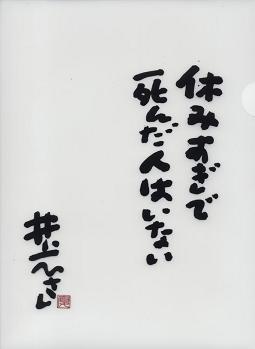 休みすぎで
死んだ人はいない
井上ひさし